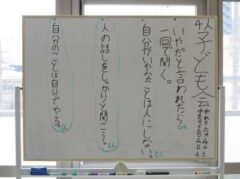 子ども会
いやだと言われたら
一回で聞く。
自分がいやなことは人にしない。
人の話しをしっかりと聞こう。
自分のことは自分でやる。